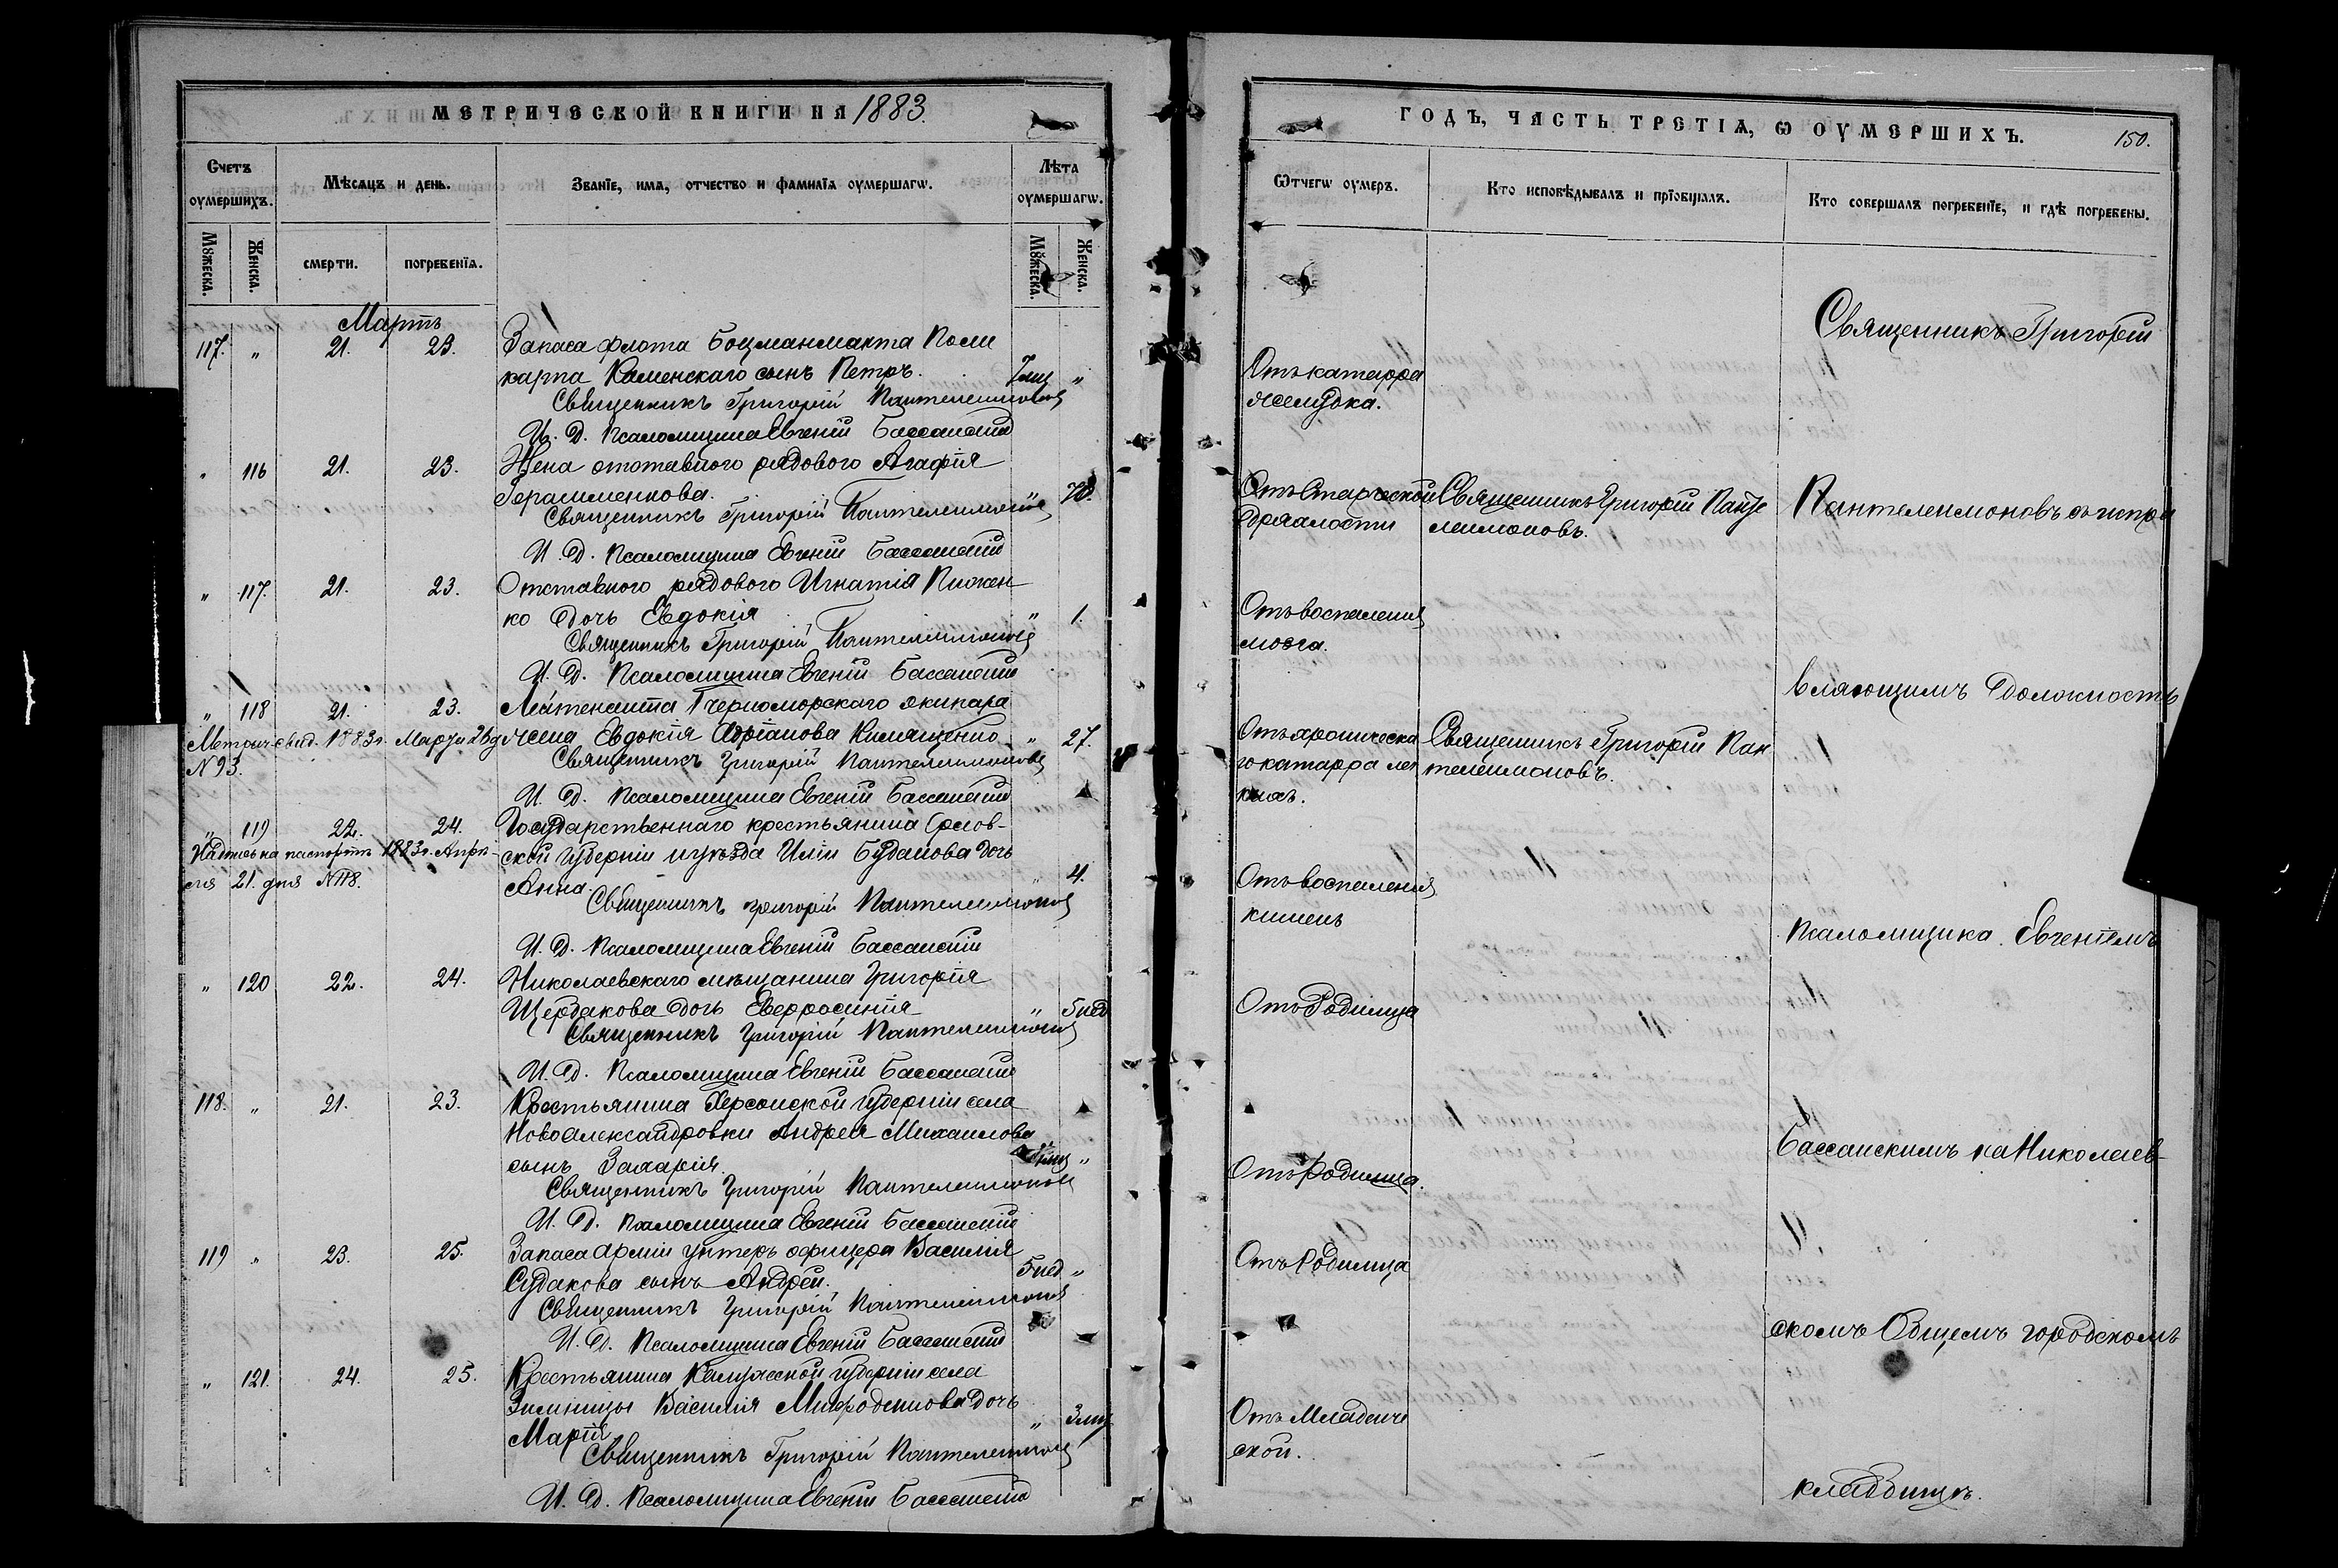 МЕТРИЧЕСКОЙ КНИГИ НА 1883.
Счетъ оумершихъ.
Мѣсяцъ и день.
Званїе, имя, отчество и фамилїя оумершагѡ.
Лѣта оумершагѡ.
Мꙋжеска.
Женска.
смерти.
погребенїя.
Мꙋжеска.
Женска.
Мартъ
117. " 21. 23. Запаса флота Боцманмакта Поли
карпа Каменскаго сынъ Петръ. 7 мц "
Священникъ Григорій Пантелеимоновъ
И. Д. Псаломщика Евгеній Бассанскій
" 116 21. 23. Жена отставного рядового Агафія
Герасименкова. " 70.
Священникъ Григорій Пантелеимоновъ
И. Д. Псаломщика Евгеній Бассанскій
" 117. 21. 23. Отставного рядового Игнатія
ко дочь Евдокія " 1.
Священникъ Григорій Пантелеимоновъ
И. Д. Псаломщика Евгеній Бассанскій
" 118 21. 23. Лейтенанта Черноморскаго экипажа
Метрич. свид. 1883 г. Марта 26 д жена Евдокія Адріанова " 27.
N 93. Священникъ Григорій Пантелеимоновъ
И. Д. Псаломщика Евгеній Бассанскій
" 119 22. 24. Государственнаго крестьянина Орлов-
Надпись на паспортѣ 1883 г. Апрѣ- ской губерніи и уѣзда Иліи Буданова дочь
ля 21. дня N 118. Анна. " 4.
Священникъ Григорій Пантелеимоновъ
И. Д. Псаломщика Евгеній Бассанскій
" 120 22. 24. Николаевскаго мѣщанина Григорія
Щербакова дочь Евфросинія " 5 нед
Священникъ Григорій Пантелеимоновъ
И. Д. Псаломщика Евгеній Бассанскій
118. " 21. 23. Крестьянина Херсонской губерніи села
Новоалександровки Андрея Михаилова
сынъ Захарія. "
Священникъ Григорій Пантелеимоновъ
И. Д. Псаломщика Евгеній Бассанскій
119 " 23. 25. Запаса арміи унтеръ офицера Василія
Судакова сынъ Андрей. 5 нед "
Священникъ Григорій Пантелеимоновъ
И. Д. Псаломщика Евгеній Бассанскій
" 121. 24. 25. Крестьянина Калужской губерніи села
Зимницы Василія дочь
Марія " 3 мц
Священникъ Григорій Пантелеимоновъ
И. Д. Псаломщика Евгеній Бассанскій
ГОДЪ, ЧАСТЬ ТРЕТІЯ, Ѡ ОУМЕРШИХЪ.
150.
Ѿчегѡ оумеръ.
Кто исповѣдывалъ и прїобщалъ.
Кто совершалъ погребенїе, и гдѣ погребены.
Священникъ Григорій
Отъ катарра
желудка.
Отъ Старческой Священникъ Григорій Панте Пантелеимоновъ съ испра
дряхлости леимоновъ.
Отъ воспаленія
мозга.
вляющимъ должность
Отъ хроническа Священникъ Григорій Пан
го катарра лег телеимоновъ.
кихъ.
Отъ воспаленія
кишекъ
Псаломщика Евгеніемъ
Отъ Родимца
Бассанскимъ на Николаев-
Отъ Родимца.
Отъ Родимца
скомъ Общемъ городскомъ
Отъ Младенче
ской.
кладбищѣ.